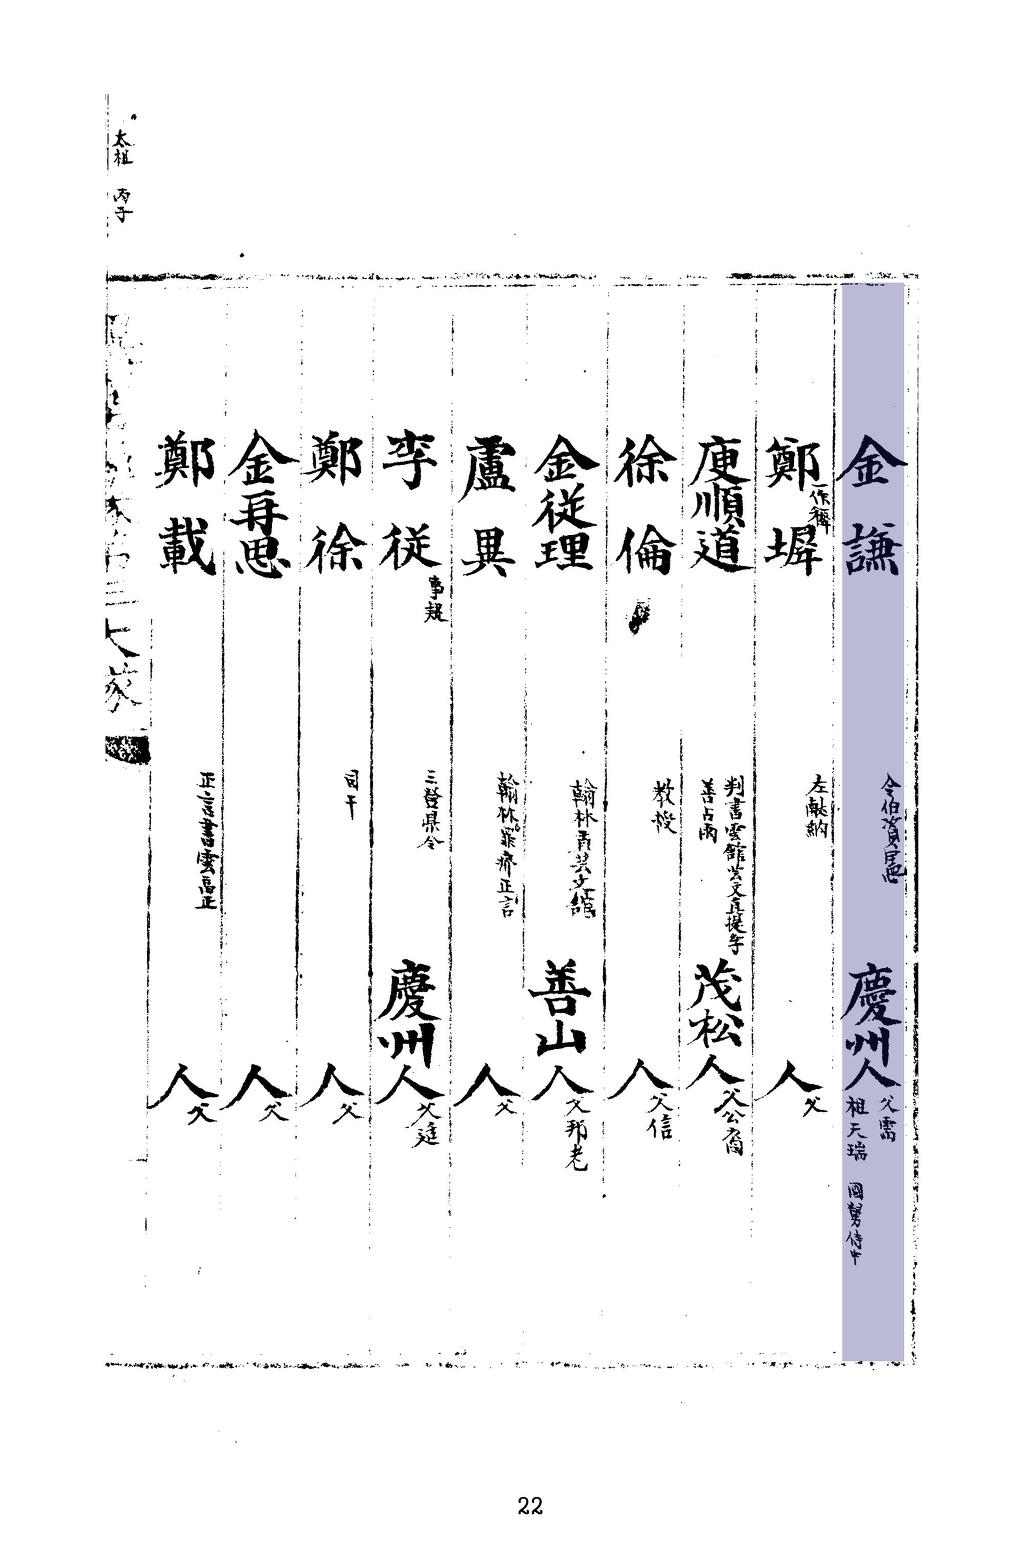 金謙 令伯資蹇 慶州人 父需 祖天瑞 國舅侍中
鄭墀 一作穉 左献納 人 父
庾順道 判書雲館芸文直提学 善占雨 茂松人 父公裔
徐倫 教授 人 父信
金從理 翰林 芸文館 善山人 父邦老
盧異 翰林 正言 人 父
李從 事親 三登県令 慶州人 父廷
鄭徐 司干 人 父
金再思 人 父
鄭載 正言書雲副正 人 父
太祖 丙子
22